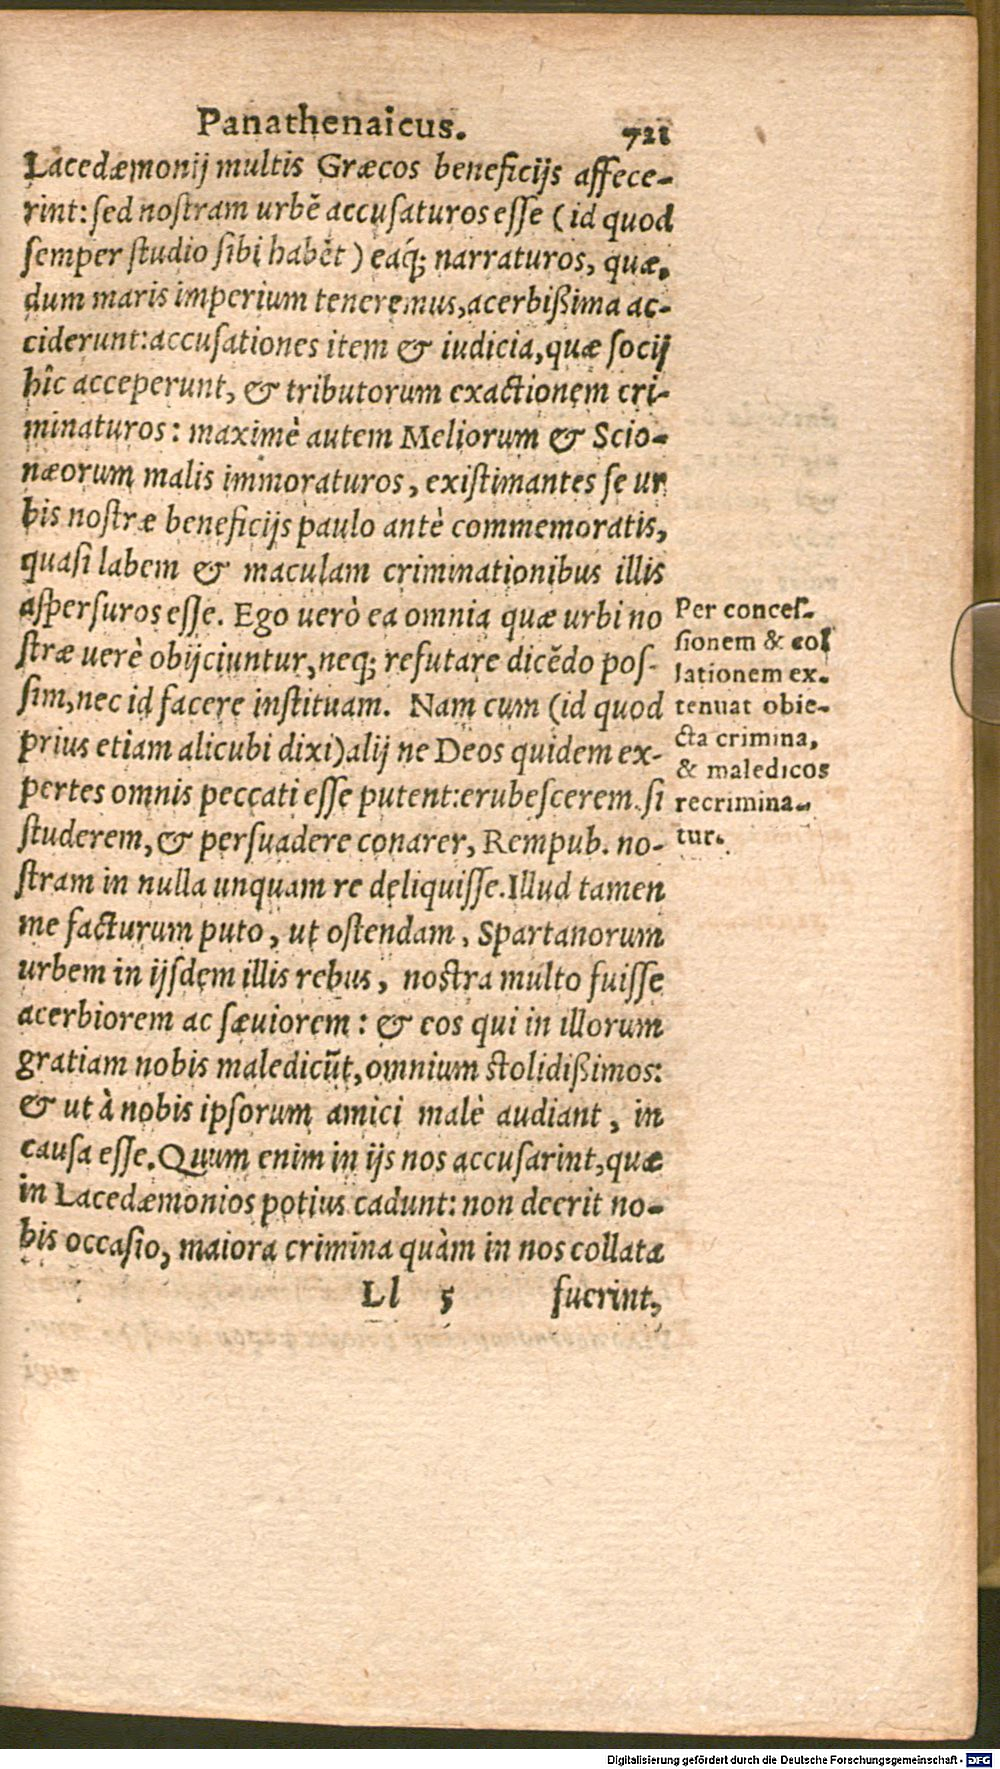 Panathenaicus. 721
Lacedæmonij multis Græcos beneficijs affece-
rint: sed nostram urbē accusaturos esse (id quod
semper studio sibi habēt) eaq́; narraturos, quæ,
dum maris imperium teneremus, acerbißima ac-
ciderunt: accusationes item & iudicia, quæ socij
hîc acceperunt, & tributorum exactionem cri-
minaturos: maximè autem Meliorum & Scio-
næorum malis immoraturos, existimantes se ur
bis nostræ beneficijs paulo antè commemoratis,
quasi labem & maculam criminationibus illis
aspersuros esse. Ego uerò ea omnia quæ urbi no
stræ uerè obijciuntur, neq; refutare dicēdo pos-
sim, nec id facere instituam. Nam cum (id quod
prius etiam alicubi dixi) alij ne Deos quidem ex-
pertes omnis peccati esse putent: erubescerem si
studerem, & persuadere conarer, Rempub. no-
stram in nulla unquam re deliquisse. Illud tamen
me facturum puto, ut ostendam, Spartanorum
urbem in ijsdem illis rebus, nostra multo fuisse
acerbiorem ac sæuiorem: & eos qui in illorum
gratiam nobis maledicūt, omnium stolidißimos:
& ut à nobis ipsorum amici malè audiant, in
causa esse. Quum enim in ijs nos accusarint, quæ
in Lacedæmonios potius cadunt: non deerit no-
bis occasio, maiora crimina quàm in nos collata
Ll 5 fuerint,
Per conces-
sionem & col
lationem ex-
tenuat obie-
cta crimina,
& maledicos
recrimina-
tur.
Digitalisierung gefördert durch die Deutsche Forschungsgemeinschaft - DFG